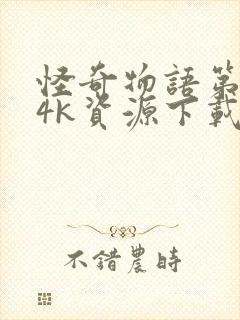 怪奇物語第
4K資源下載
不錯農時